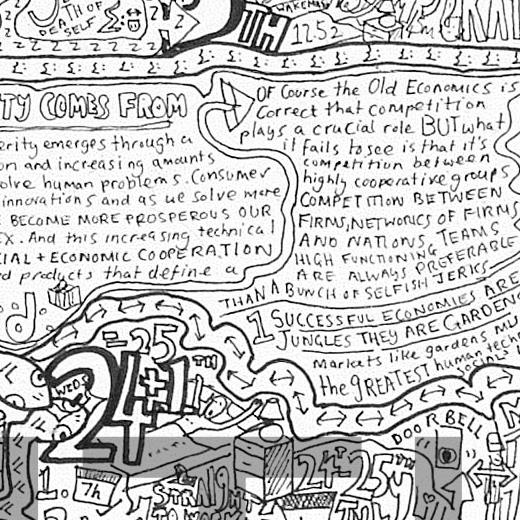 DEATH OF
SELF
TH 12.52
TY COMES FROM
erity emerges through a
on and increasing amounts
olve human problems. Consumer
innovations and as we solve more
BECOME MORE PROSPEROUS OUR
EX. And this increasing technical
IAL + ECONOMIC COOPERATION
d products that define a
OF Course the Old Economics is
correct that competition
plays a crucial role BUT what
it fails to see is that it's
competition between
highly cooperative groups
COMPETITION BETWEEN
FIRMS, NETWORKS OF FIRMS
AND NATIONS, TEAMS
HIGH FUNCTIONING
ARE ALWAYS PREFERABLE
THAN A BUNCH OF SELFISH JERKS
1 SUCCESSFUL ECONOMIES ARE
JUNGLES THEY ARE GARDENS
Markets like gardens MU
the GREATEST human tech
=25
24+1
TH
WEDS
DOOR BELL
1.
7h
STRAIGHT
TO WORK
24